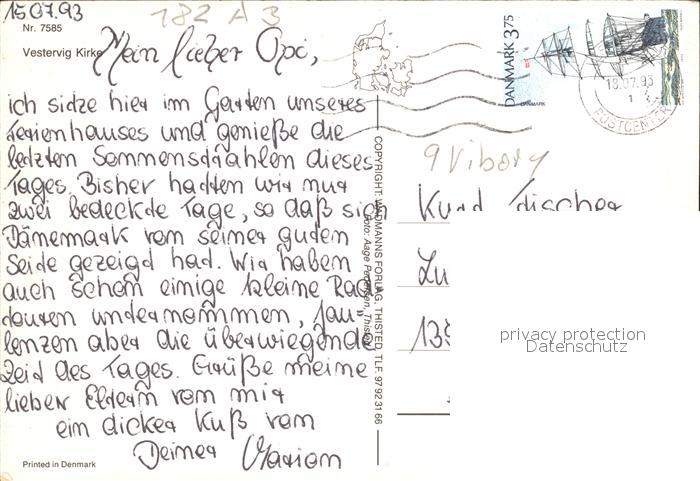 15.07.93
182 A 3
Nr. 7585
Vestervig Kirke
Mein lieber Opi,
ich sitze hier im Garten unseres
Ferienhauses und genieße die
letzten Sonnenstrahlen dieses
Tages. Bisher hatten wir nur
zwei bedeckte Tage, so daß sich
Dänemark von seiner guten
Seite gezeigt hat. Wir haben
auch schon einige kleine Rad-
touren unternommen, fau=
lenzen aber die überwiegende
Zeit des Tages. Grüße meine
lieben Eltern von mir
ein dicker Kuß von
Deiner Marion
Printed in Denmark
COPYRIGHT: WADMANNS FORLAG, THISTED. TLF. 97 92 31 66
Foto: Aage Pedersen, Thisted
DANMARK 3.75
DANMARK
18.07.93
1
POSTCENTER
9 Viborg
Lu
privacy protection
Datenschutz